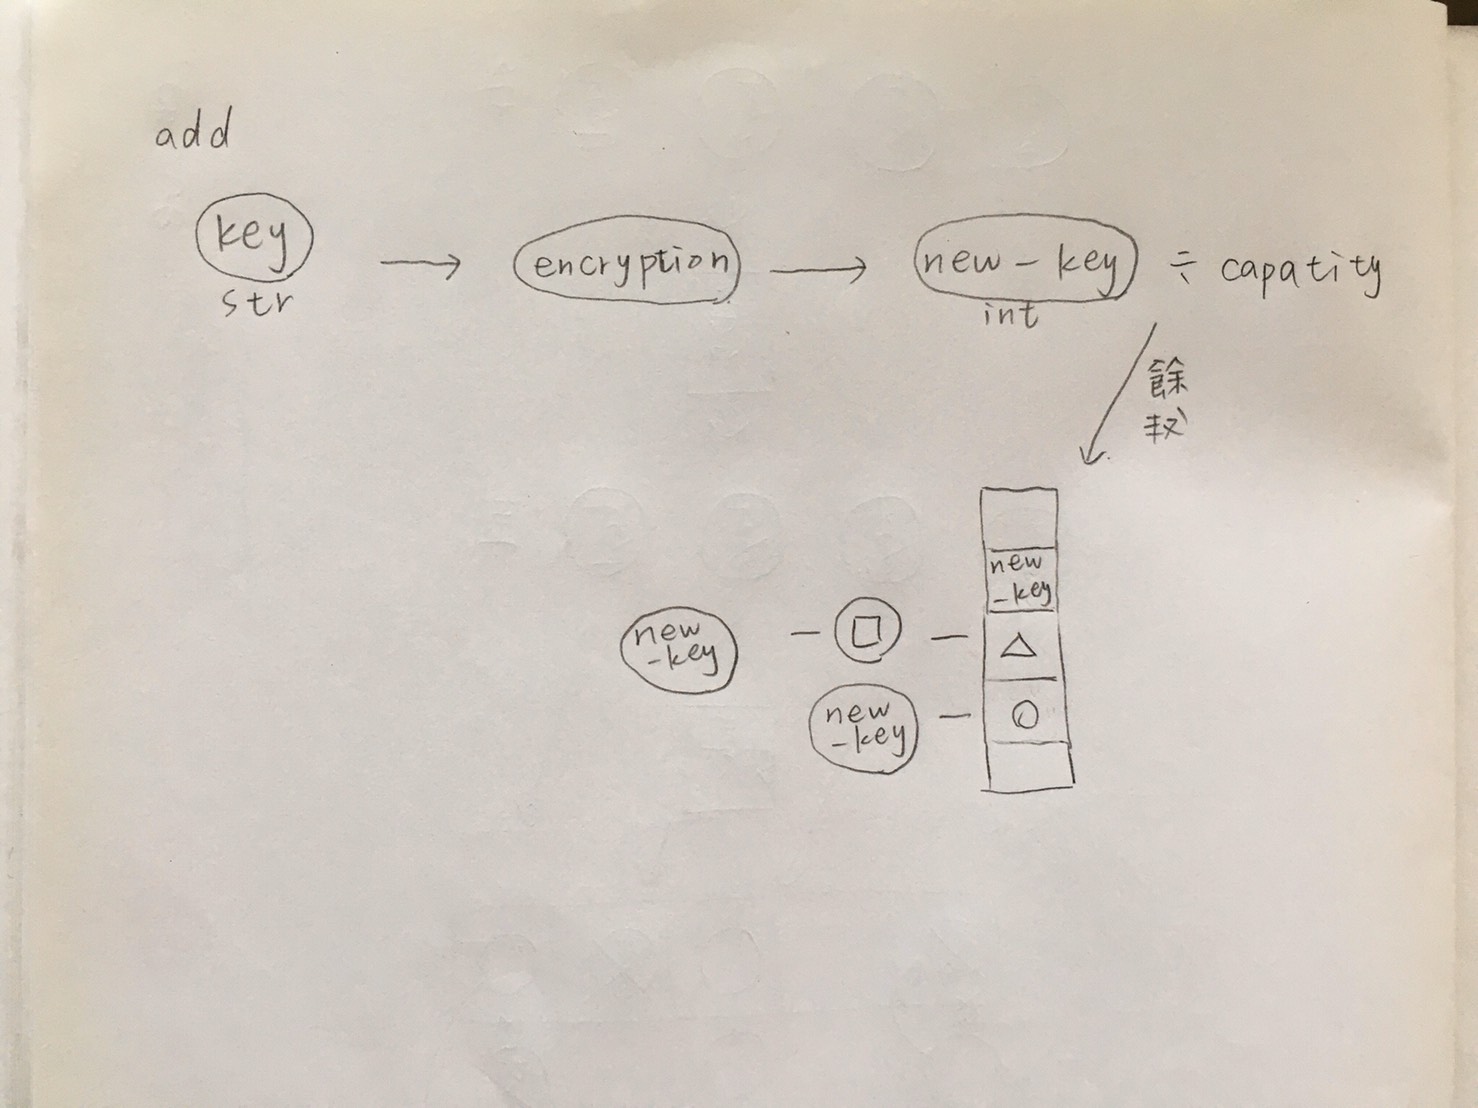 add
key
str
encryption
new-key
int
÷ capatity
餘
new
-key
new
-key
new
-key